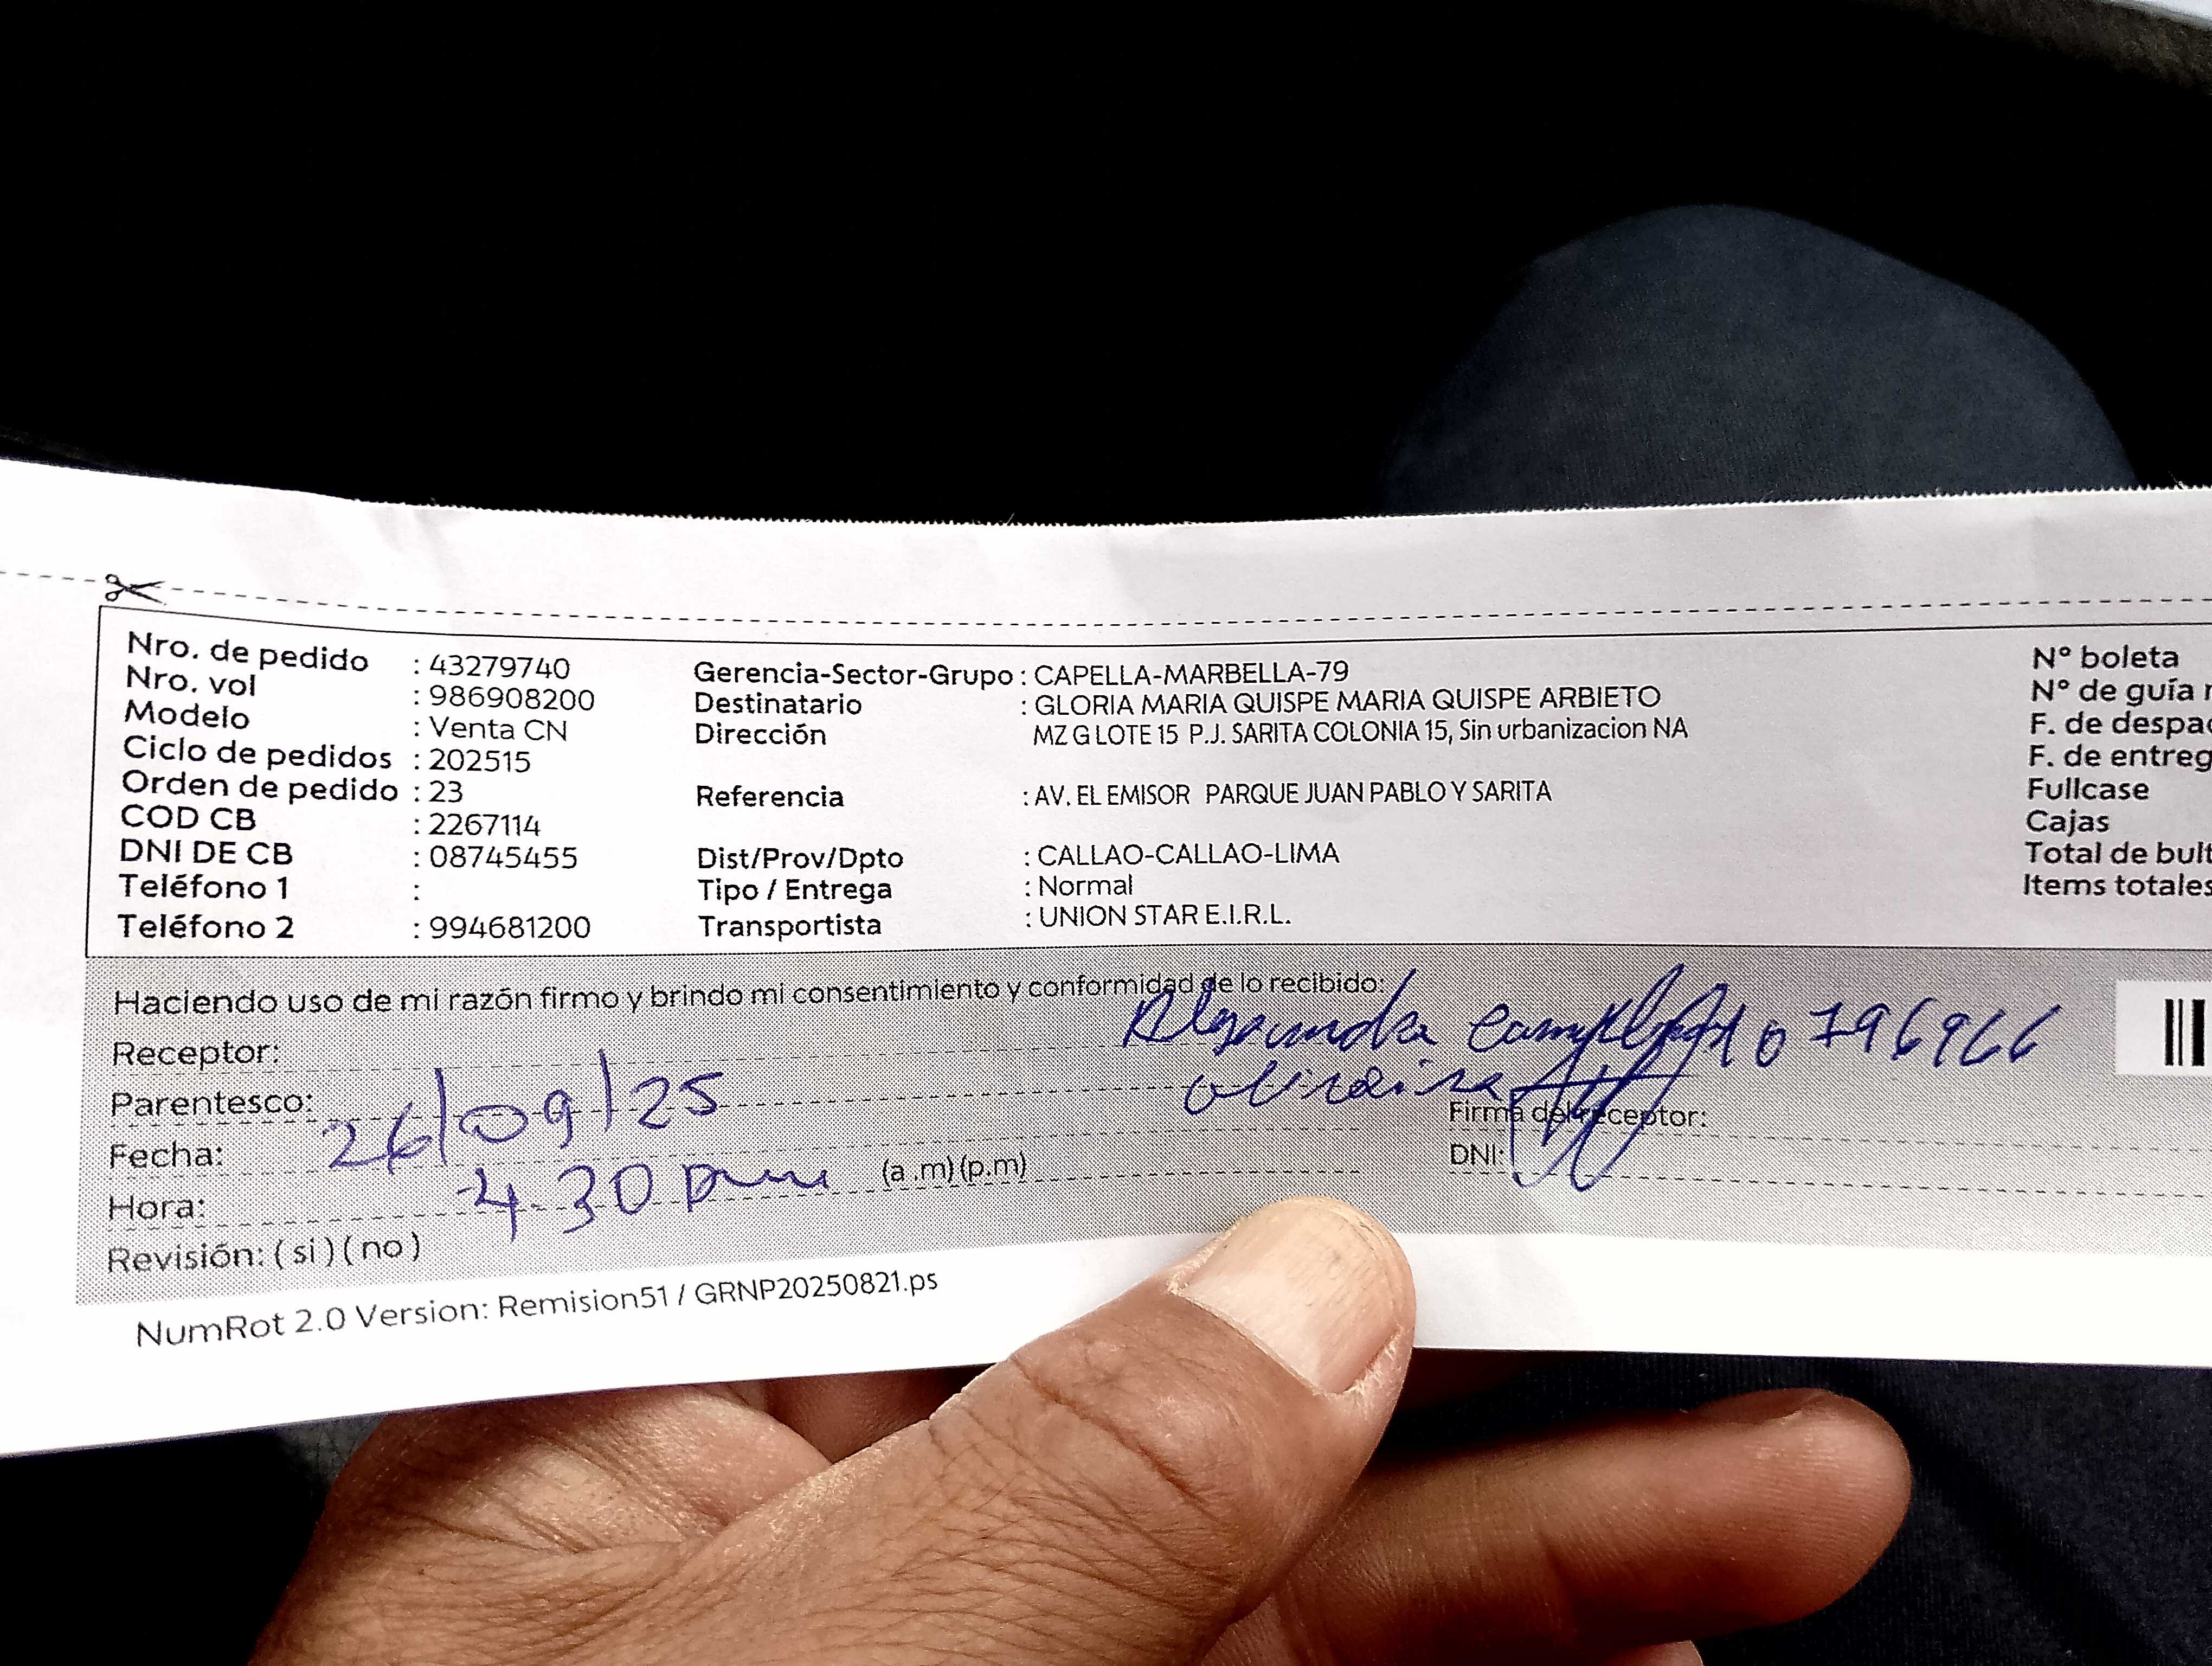 Nro. de pedido : 43279740
Nro. vol : 986908200
Modelo : Venta CN
Ciclo de pedidos : 202515
Orden de pedido : 23
COD CB : 2267114
DNI DE CB : 08745455
Teléfono 1 :
Teléfono 2 : 994681200
Gerencia-Sector-Grupo : CAPELLA-MARBELLA-79
Destinatario : GLORIA MARIA QUISPE MARIA QUISPE ARBIETO
Dirección MZ G LOTE 15 P.J. SARITA COLONIA 15, Sin urbanizacion NA
Referencia : AV. EL EMISOR PARQUE JUAN PABLO Y SARITA
Dist/Prov/Dpto : CALLAO-CALLAO-LIMA
Tipo / Entrega : Normal
Transportista : UNION STAR E.I.R.L.
N° boleta
N° de guía
F. de despac
F. de entreg
Fullcase
Cajas
Total de bult
Items totales
Haciendo uso de mi razón firmo y brindo mi consentimiento y conformidad de lo recibido:
Receptor:
Parentesco:
Fecha: 26/09/25
Hora: 4.30 pm (a.m) (p.m)
Revisión: ( si ) ( no )
Firma del receptor:
DNI:
NumRot 2.0 Version: Remision51 / GRNP20250821.ps